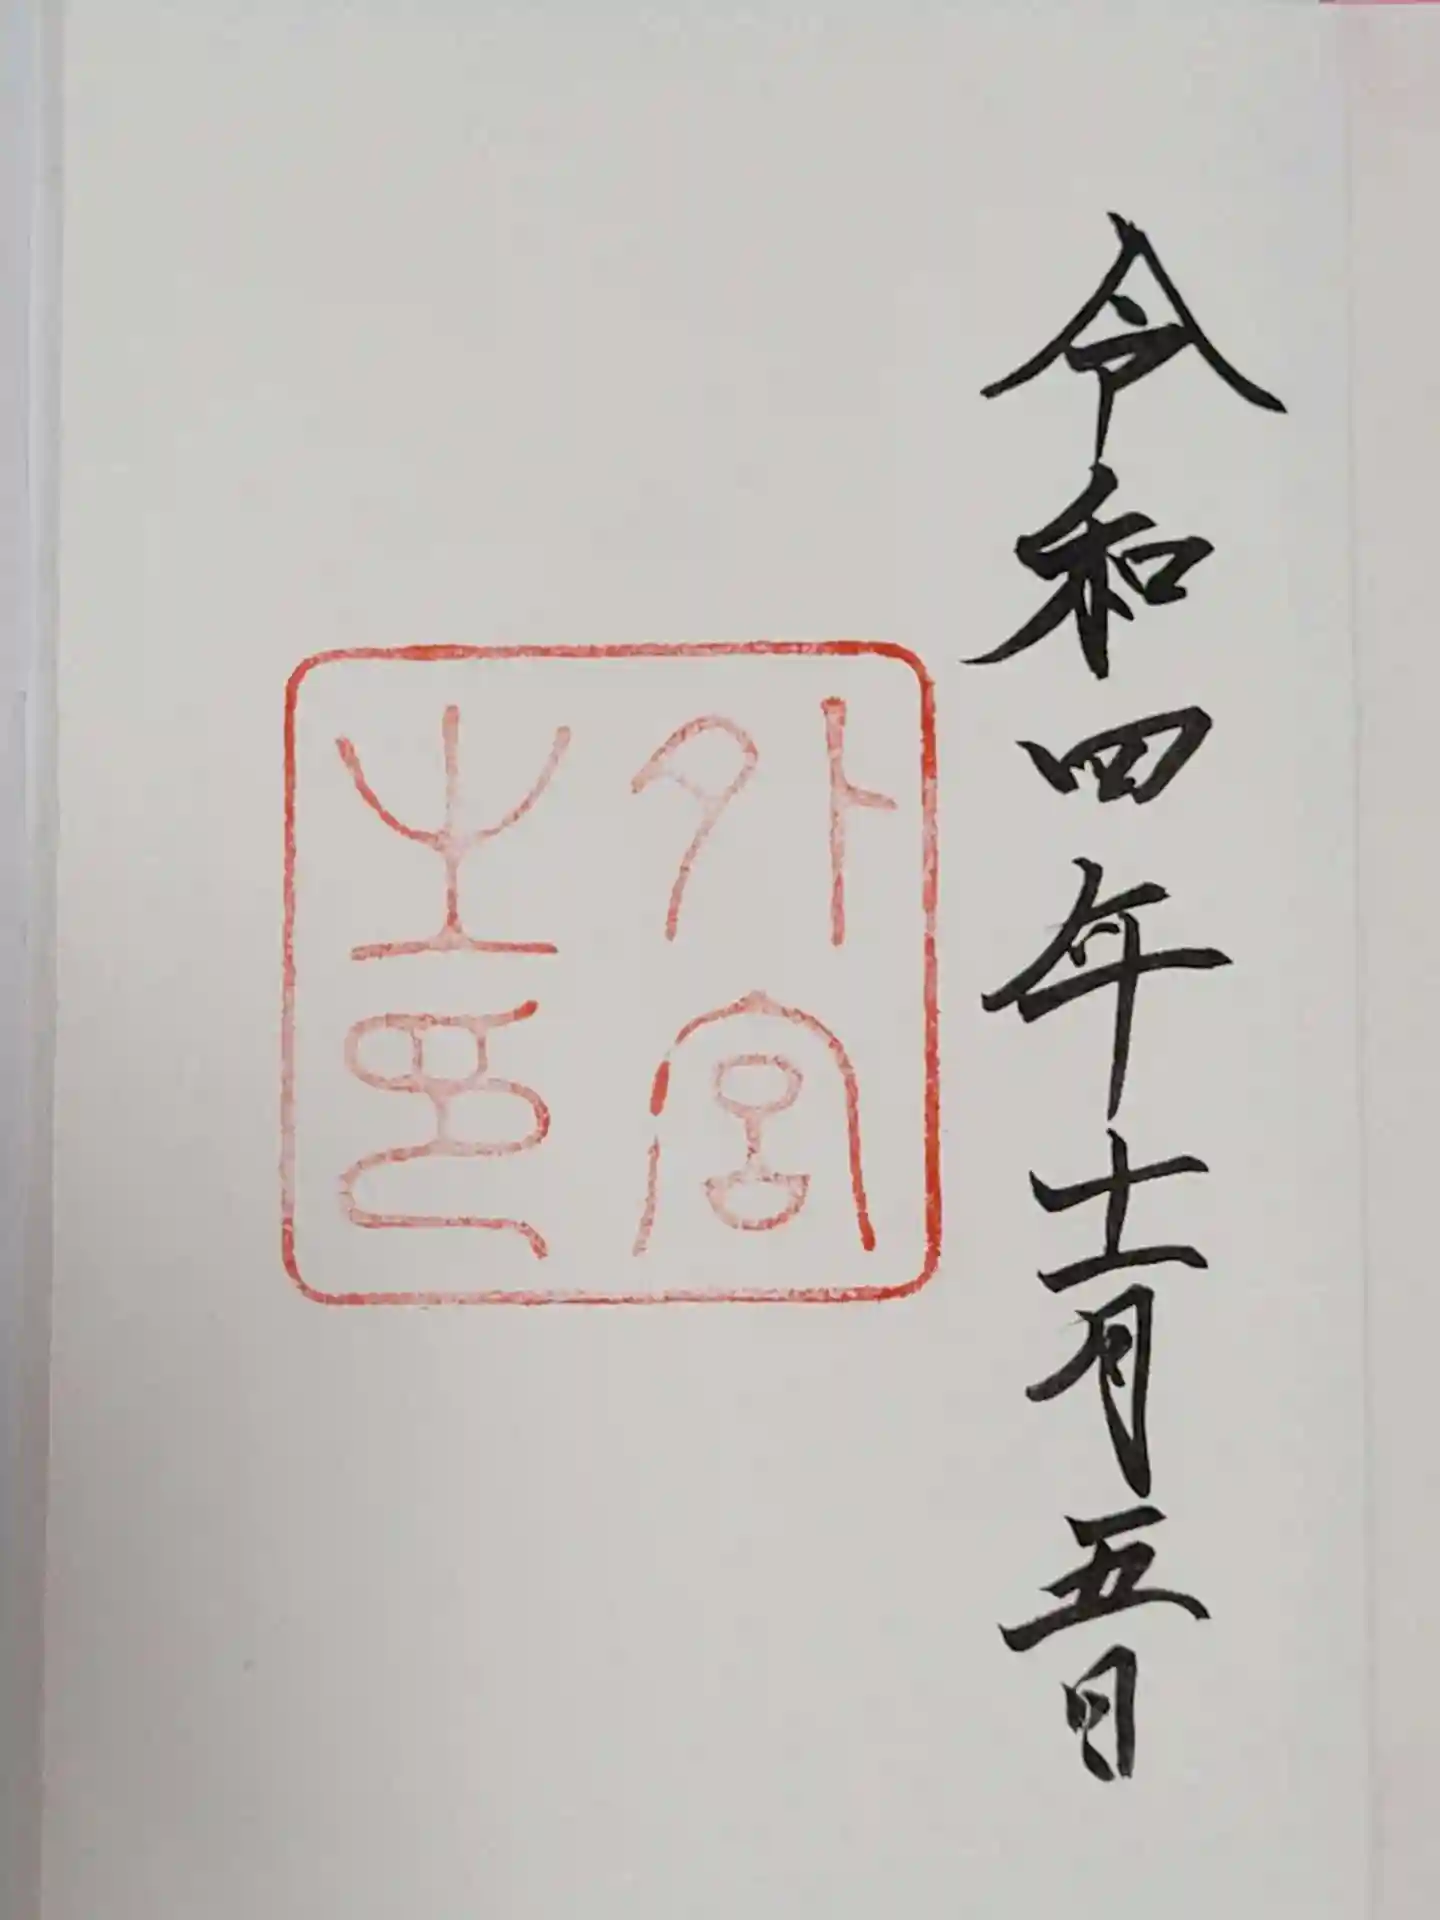 令和四年十一月五日
外宮
之印